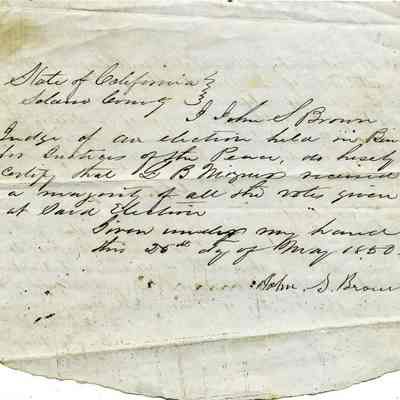 State of California
Solano County
I John S Brown
Judge of an election held in
for Justices of the Peace, do hereby
certify that L B Mizner received
a majority of all the votes given
at Said Election
Given under my hand
this 25th dy of May 1850
John S. Brown